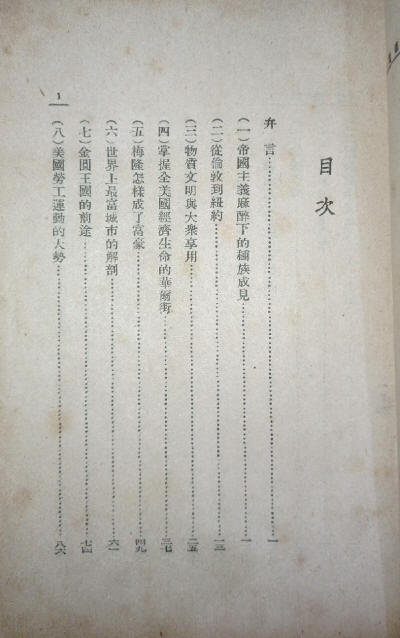 目次
弁言 一
(一)帝國主義麻醉下的種族成見 一
(二)從倫敦到紐約 一三
(三)物質文明與大衆享用 二五
(四)掌握全美國經濟生命的華爾街 三七
(五)梅隆怎樣成了富豪 四九
(六)世界上最富城市的解剖 六一
(七)金圓王國的前途 七四
(八)美國勞工運動的大勢 八六
1